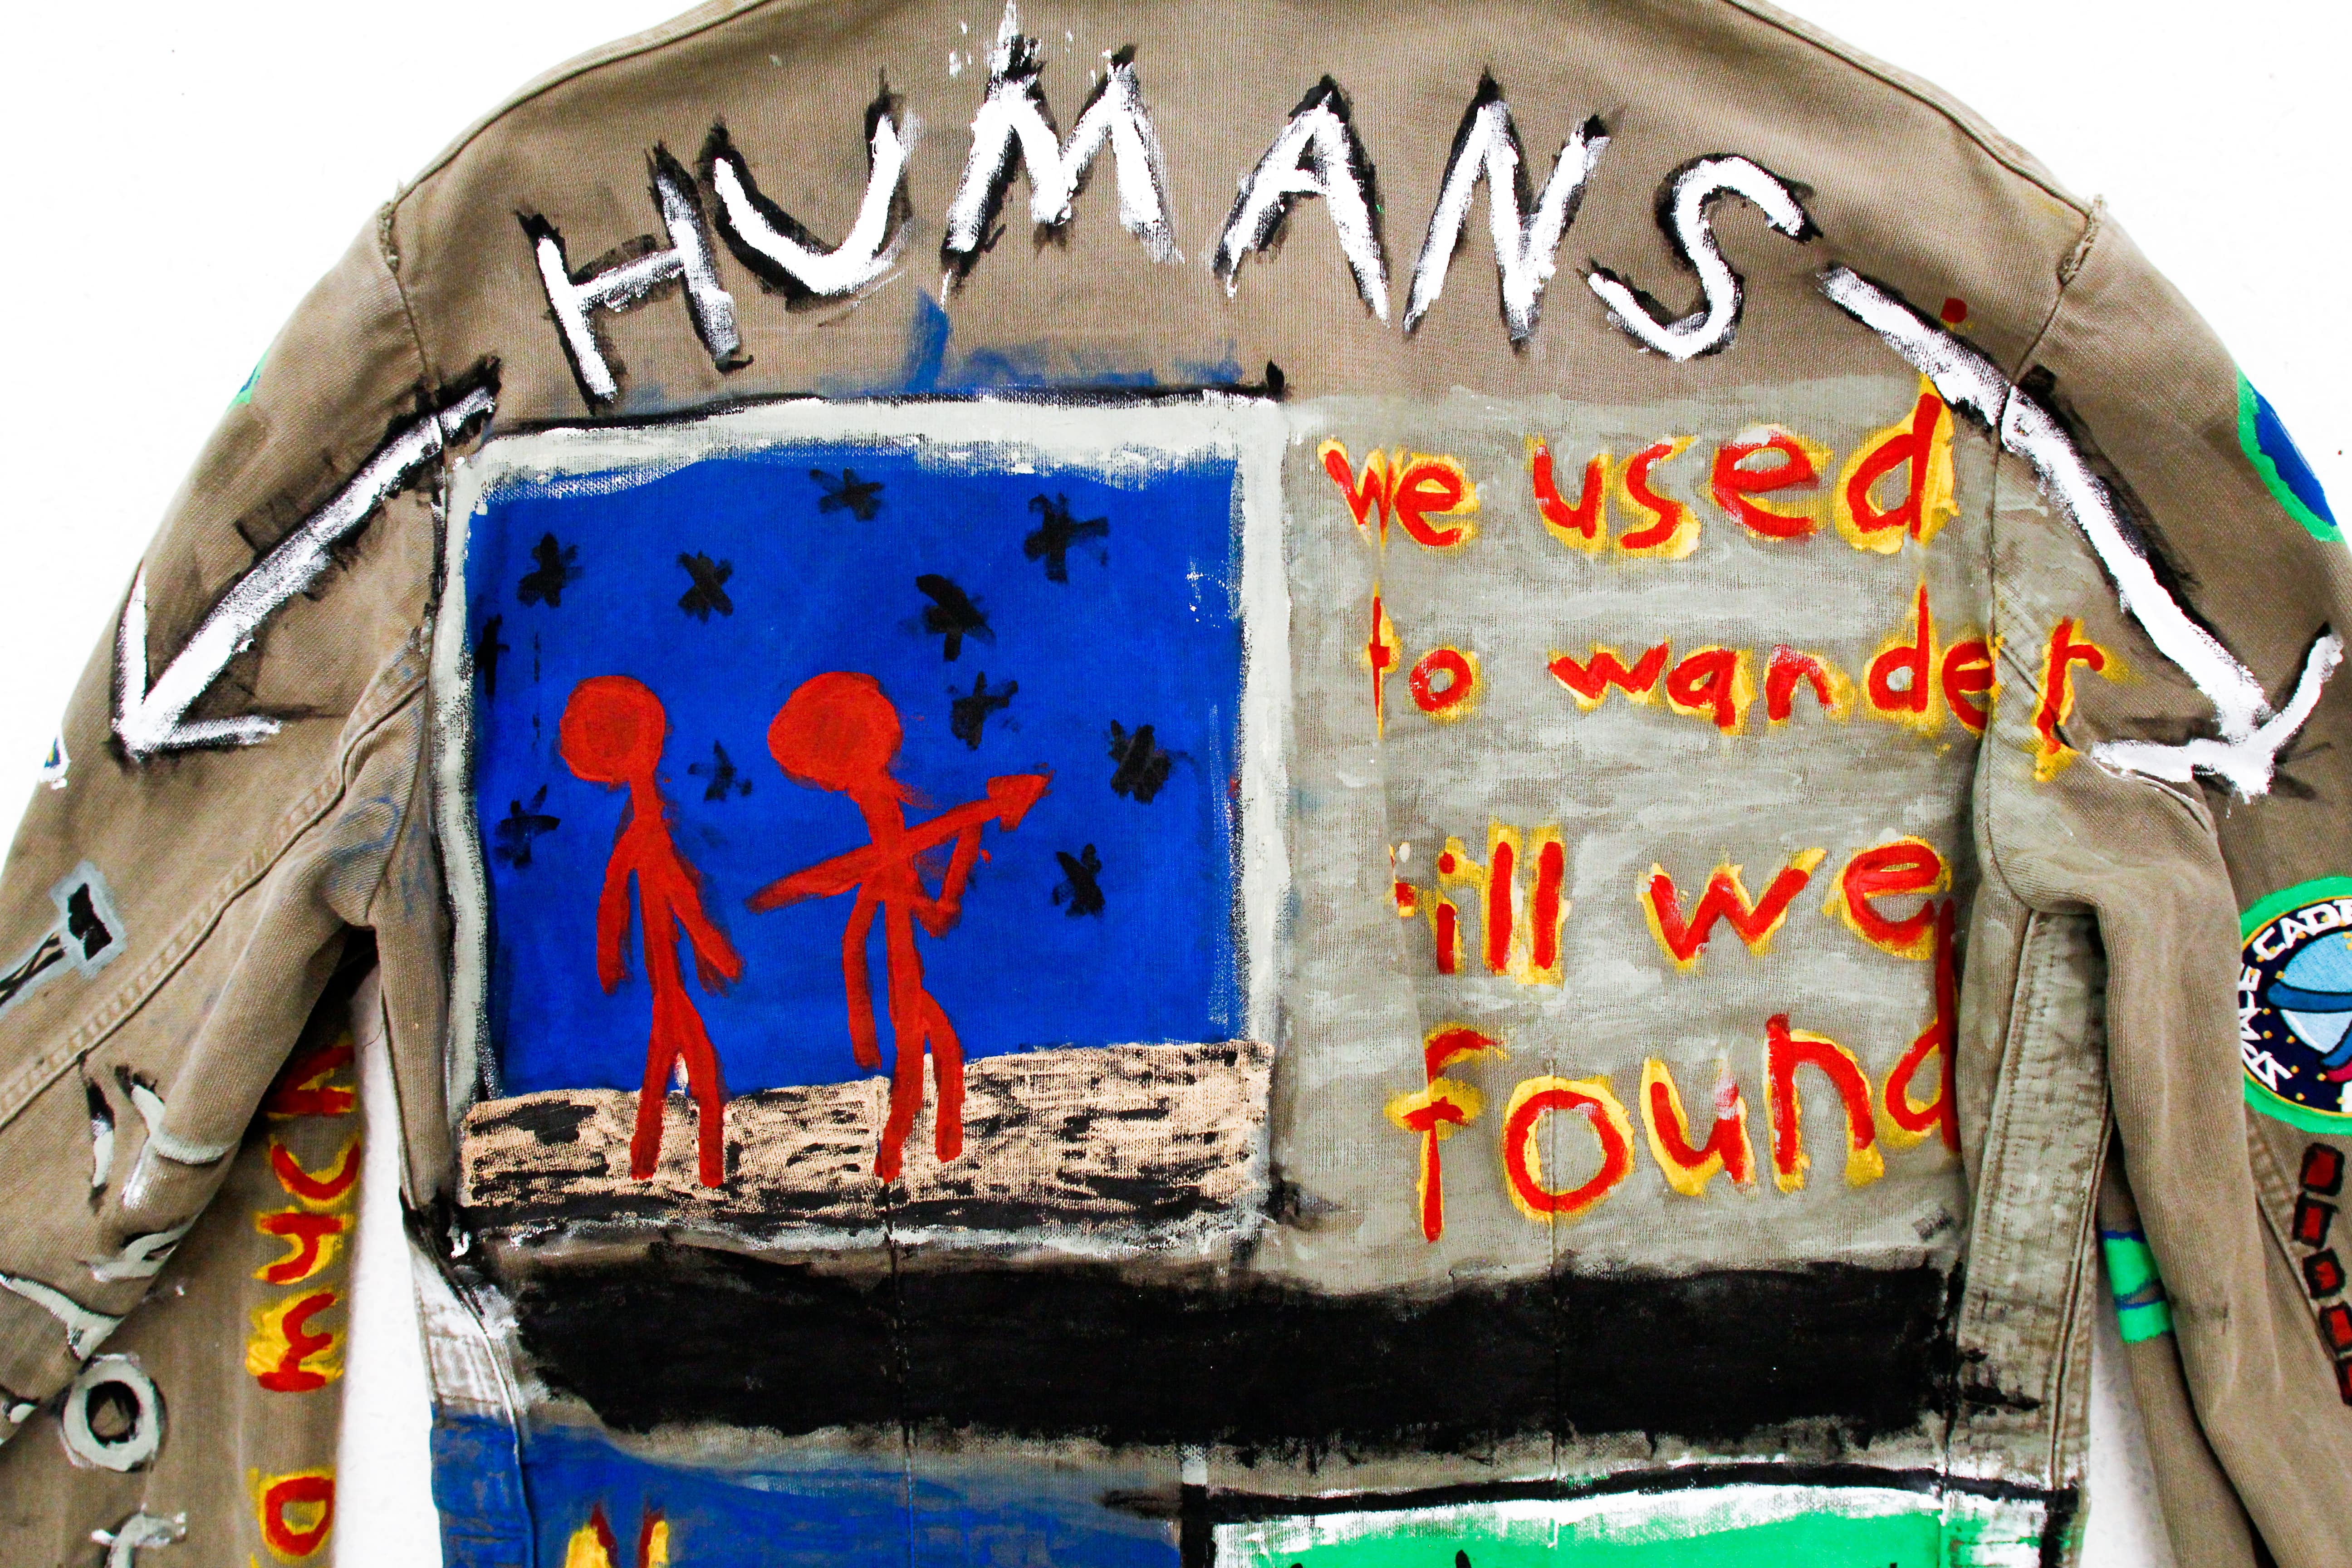 HUMANS
we used
to wander
till we
found
SPACE CADET